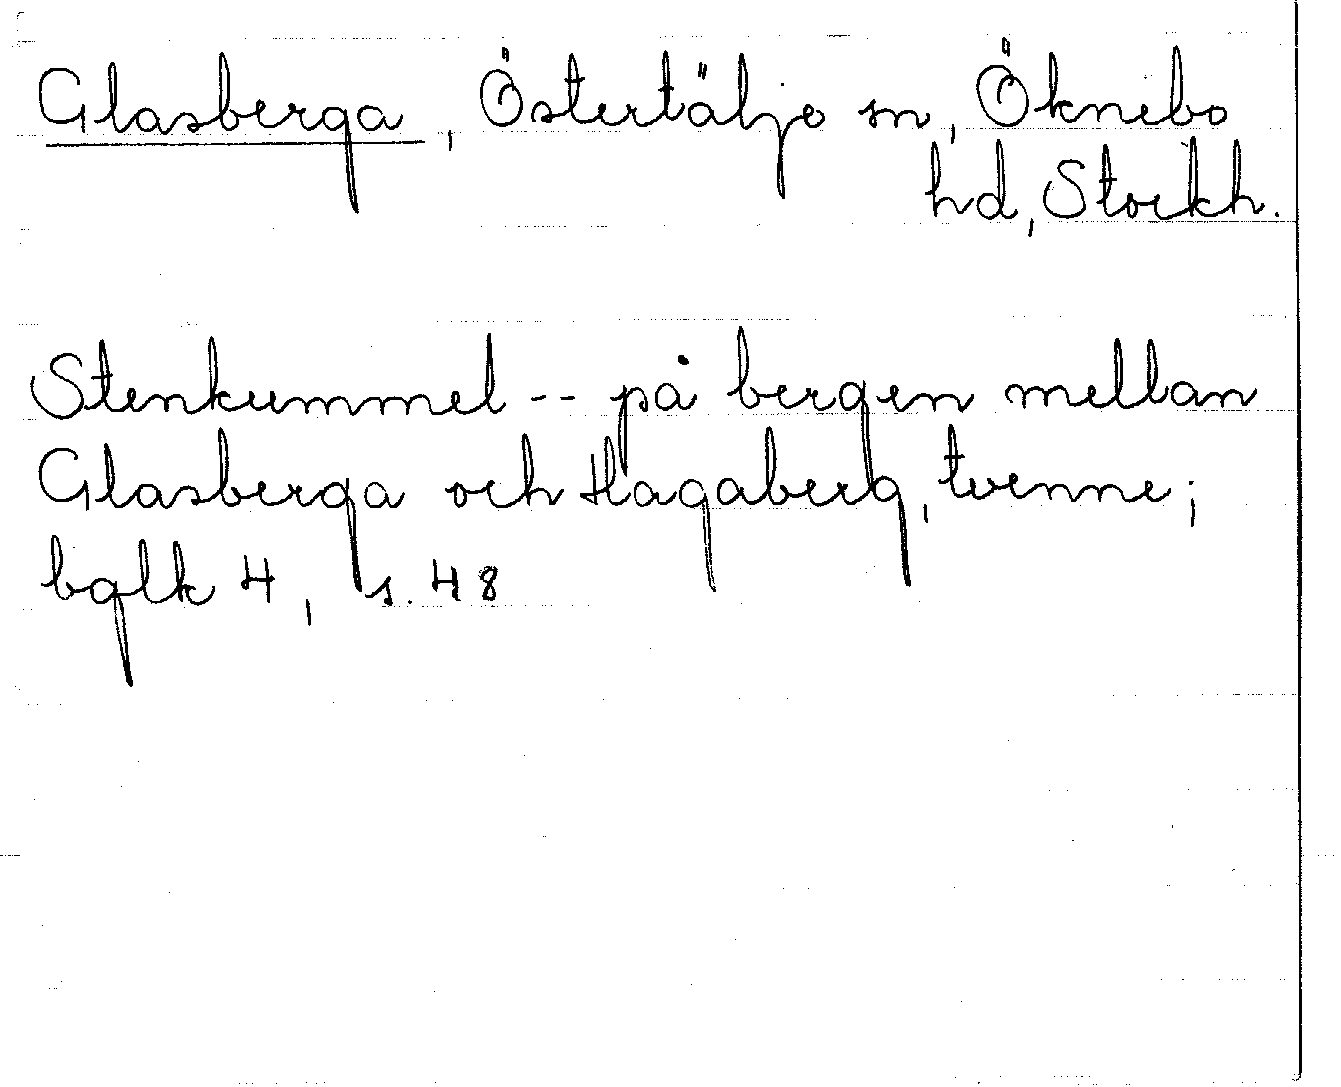 Glasberga, Östertälje sn, Öknebo
hd, Stockh.
Stenkummel -- på bergen mellan
Glasberga och Hagaberg, tvenne;
bglk 4, s. 48